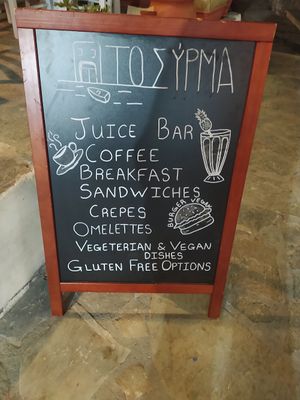 ΤΟ ΣΎΡΜΑ
JUICE BAR
COFFEE
BREAKFAST
SANDWICHES
CREPES
BURGER VEGAN
OMELETTES
VEGETERIAN & VEGAN
DISHES
GLUTEN FREE OPTIONS